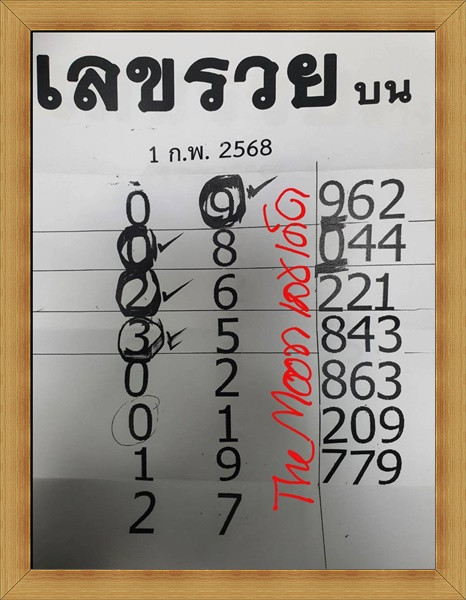 เลขรวย บน
1 ก.พ. 2568
0 9 962
0 8 044
2 6 221
3 5 843
0 2 863
0 1 209
1 9 779
2 7
The Moon